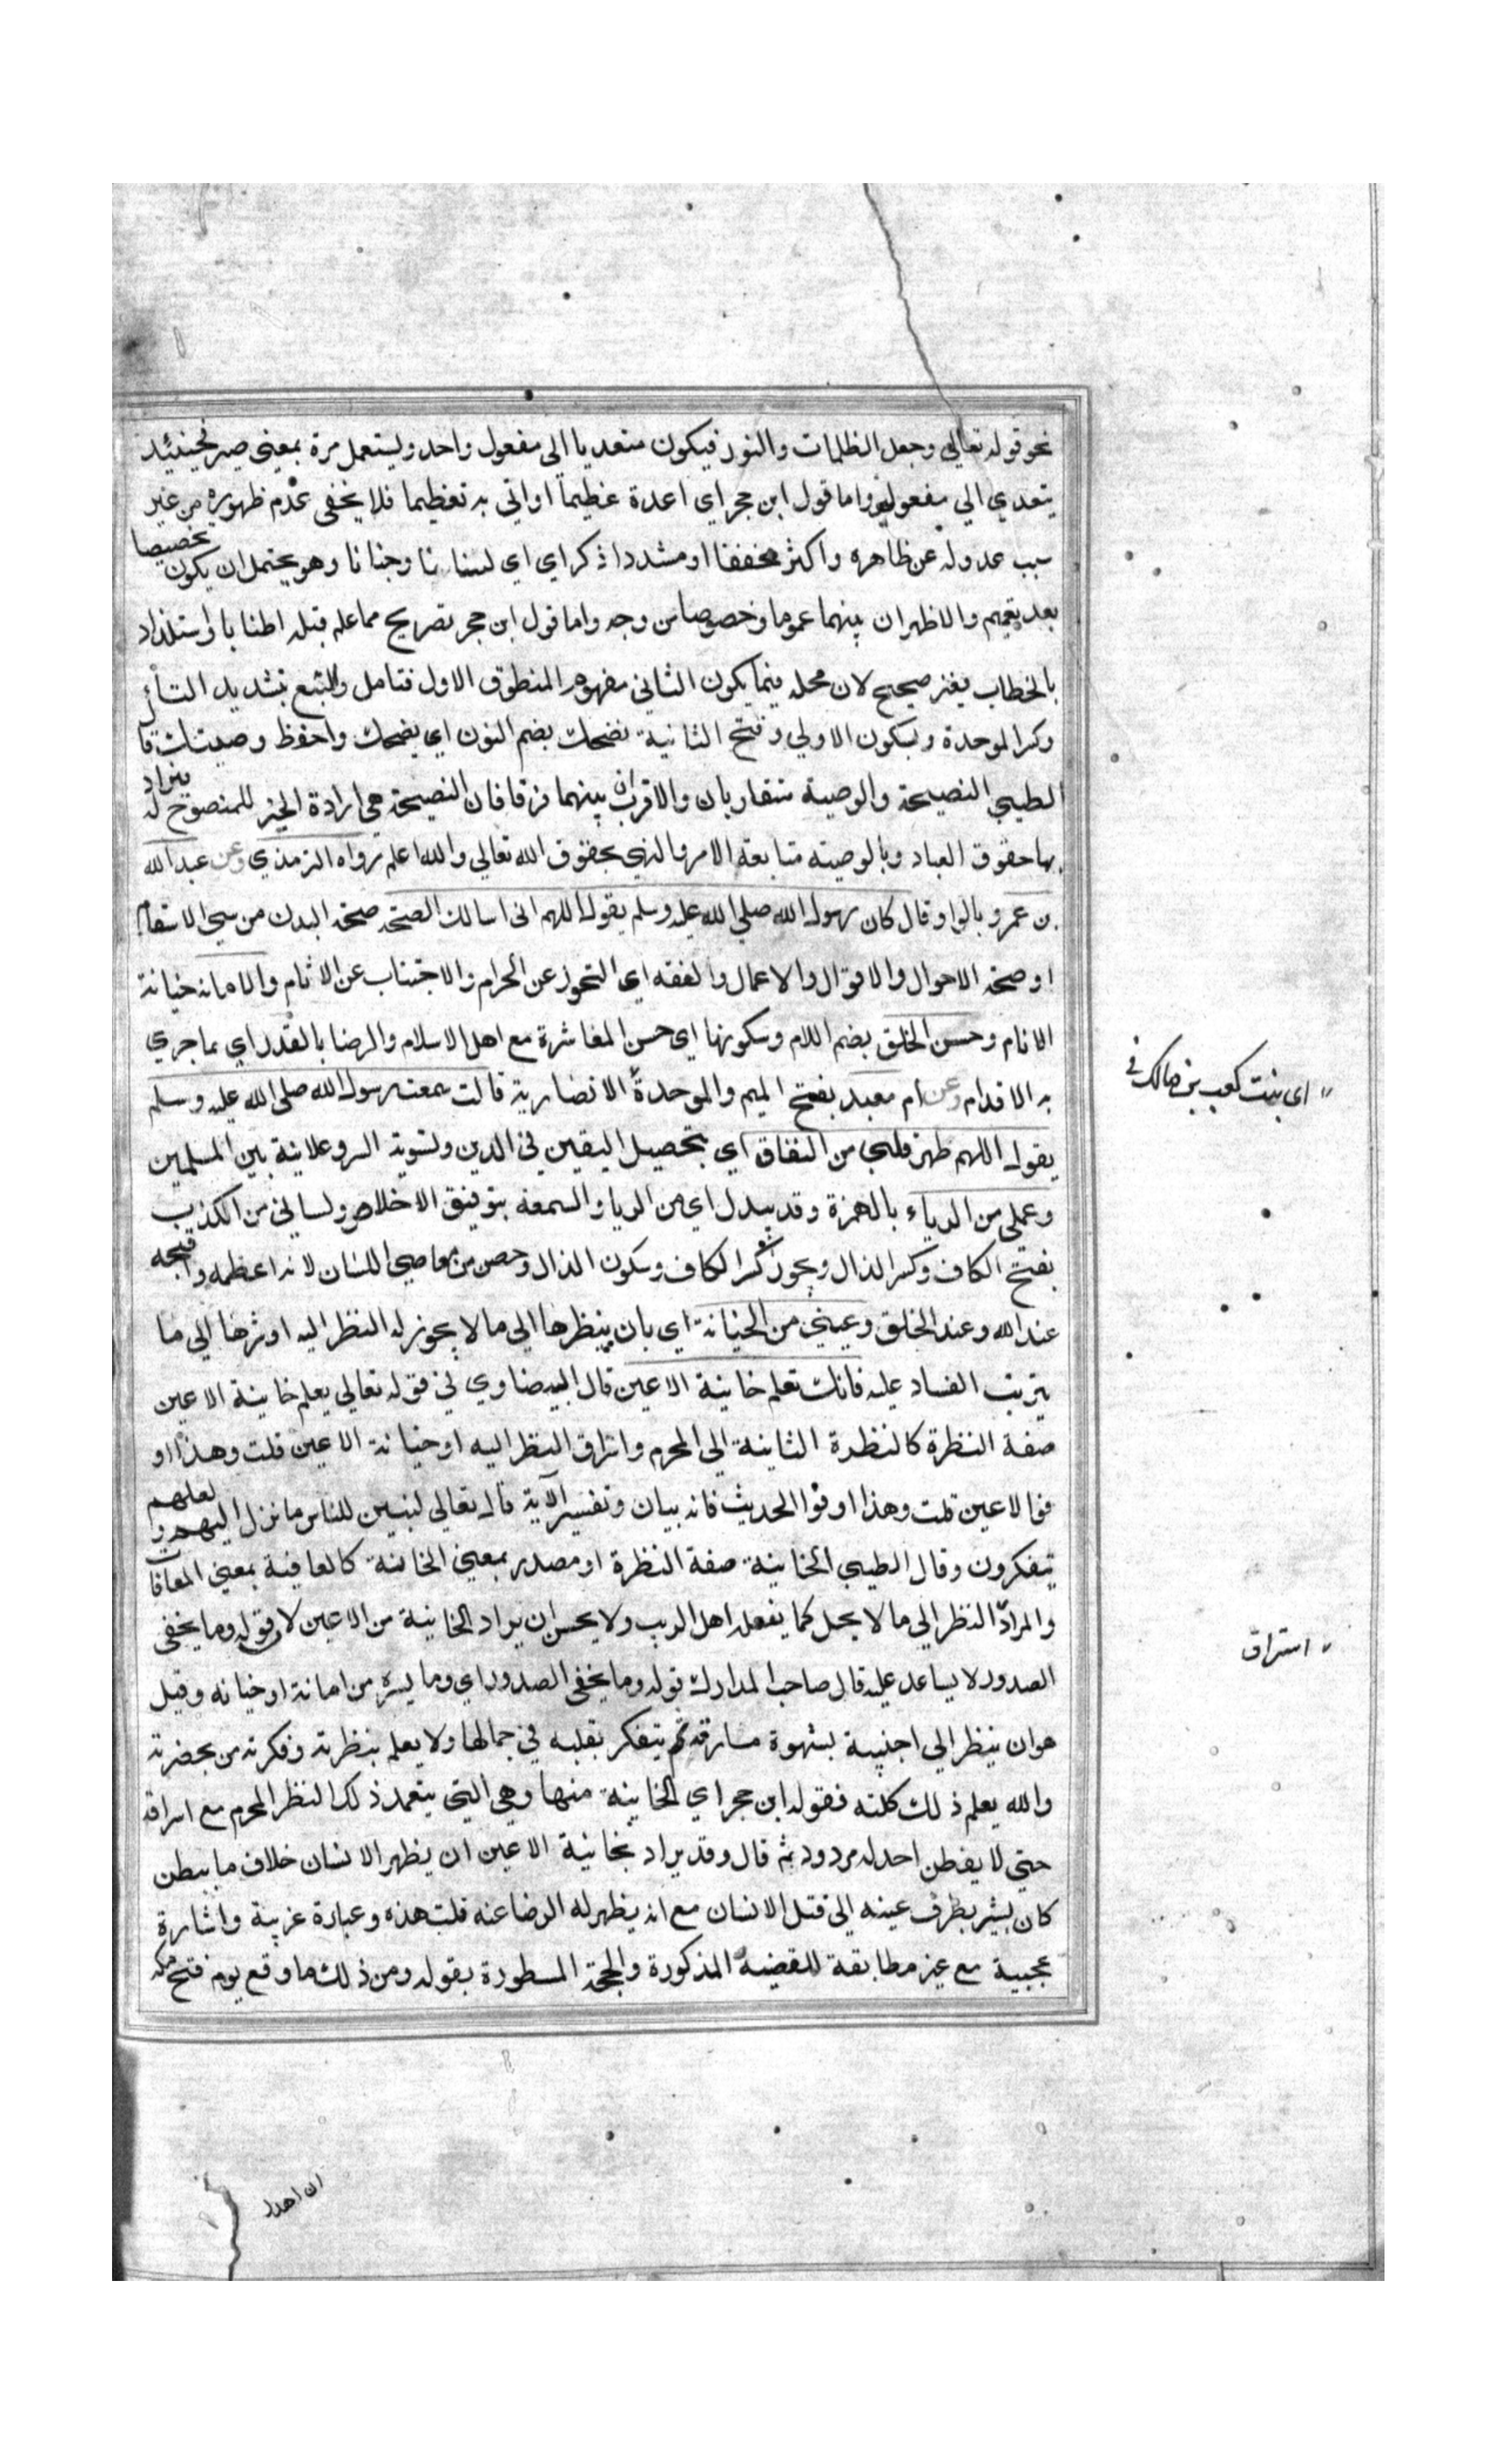 نحو قوله تعالي وجعل الظلمات والنور فيكون متعديا الى مفعول واحد ويستعمل مرة بمعنى صير فحينئذ
يتعدي الي مفعولين واما قول ابن حجر اي اعدة عظيما او اتي به تعظيما فلا يخفى عدم ظهوره من غير
سبب عدوله عن ظاهره واكثر مخففا او مشددا ذكراي اي لسانا وجنانا وهو يحتمل ان يكون تخصيصا
بعد تعميم والاظهر ان بينهما عموما وخصوصا من وجه واما قول ابن حجر تصريح مما علم قبله اطنابا واستلذاذ
بالخطاب بغير صحيح لان محله فيما يكون الثاني مفهوم المنطوق الاول فتامل واتبع بتشديد التاء
وكسر الموحدة وبسكون الاولي وفتح الثانية نصحك بضم النون اي نصحك واحفظ وصيتك قال
الطيبي النصيحة والوصية متقاربان والاقرب ان بينهما فرقا فان النصيحة هي ارادة الخير للمنصوح له فيراد
بها حقوق العباد وبالوصية متابعة الامر والنهي بحقوق الله تعالي والله اعلم رواه الترمذي وعن عبد الله
بن عمرو بالواو قال كان رسول الله صلي الله عليه وسلم يقول اللهم اني اسالك الصحة صحة البدن من سيئ الاسقام
او صحة الاحوال والاقوال والاعمال والعفة اي التحرز عن الحرام والاجتناب عن الاثام والامانة خيانة
الانام وحسن الخلق بضم اللام وسكونها اي حسن المعاشرة مع اهل الاسلام والرضا بالقدر اي بما جري
به الاقدام وعن ام معبد بفتح الميم والموحدة الانصارية قالت سمعت رسول الله صلي الله عليه وسلم
اي بنت كعب بن مالك
يقول اللهم طهر قلبي من النفاق اي بتحصيل اليقين في الدين وتسوية السر وعلانية بين المسلمين
وعملي من الرياء بالهمزة وقد يبدل اي من الريا والسمعة بتوفيق الاخلاص ولساني من الكذب
بفتح الكاف وكسر الذال ويجوز كسر الكاف وسكون الذال وخص من معاصي اللسان لانه اعظمه واقبحه
عند الله وعند الخلق وعيني من الخيانة اي بان ينظر بها الي ما لا يجوز له النظر اليه او يشر بها الي ما
يترتب الفساد عليه فانك تعلم خاينة الاعين قال البيضاوي في قوله تعالي يعلم خاينة الاعين
صفة النظرة كالنظرة الثانية الي المحرم واستراق النظر اليه او خيانة الاعين قلت وهذا او
فوا الاعين قلت وهذا اوفوا الحديث فانه بيان وتفسير الآية قال تعالي لتبين للناس ما نزل اليهم ولعلهم
يتفكرون وقال الطيبي الخاينة صفة النظرة او مصدر بمعني الخائنة كالعافية بمعني المعافات
والمراد النظر الي ما لا يحل كما يفعله اهل الريب ولا يحسن ان يراد الخاينة من الاعين لان قوله وما يخفي
الصدور لا يساعد عليه قال صاحب المدارك قوله وما يخفي الصدور اي وما يسره من امانة او خيانة وقيل
استراق
هو ان ينظر الي اجنبية بشهوة مسارقة ثم يتفكر بقلبه في جمالها ولا يعلم بنظرته وفكرته من بحضرته
والله يعلم ذلك كلته فقول ابن حجر اي الخاينة منها وهي التي يتعمد ذلك النظر المحرم مع استراقه
حتي لا يفطن احد له مردود ثم قال وقد يراد بخاينة الاعين ان يظهر الانسان خلاف ما يبطن
كان يشير بطرف عينه الي قتل الانسان مع انه يظهر له الرضا عنه قلت هذه وعبارة غريبة واشارة
عجيبة مع غير مطابقة للقضية المذكورة والحجة المسطورة بقوله ومن ذلك ما وقع يوم فتح مكة